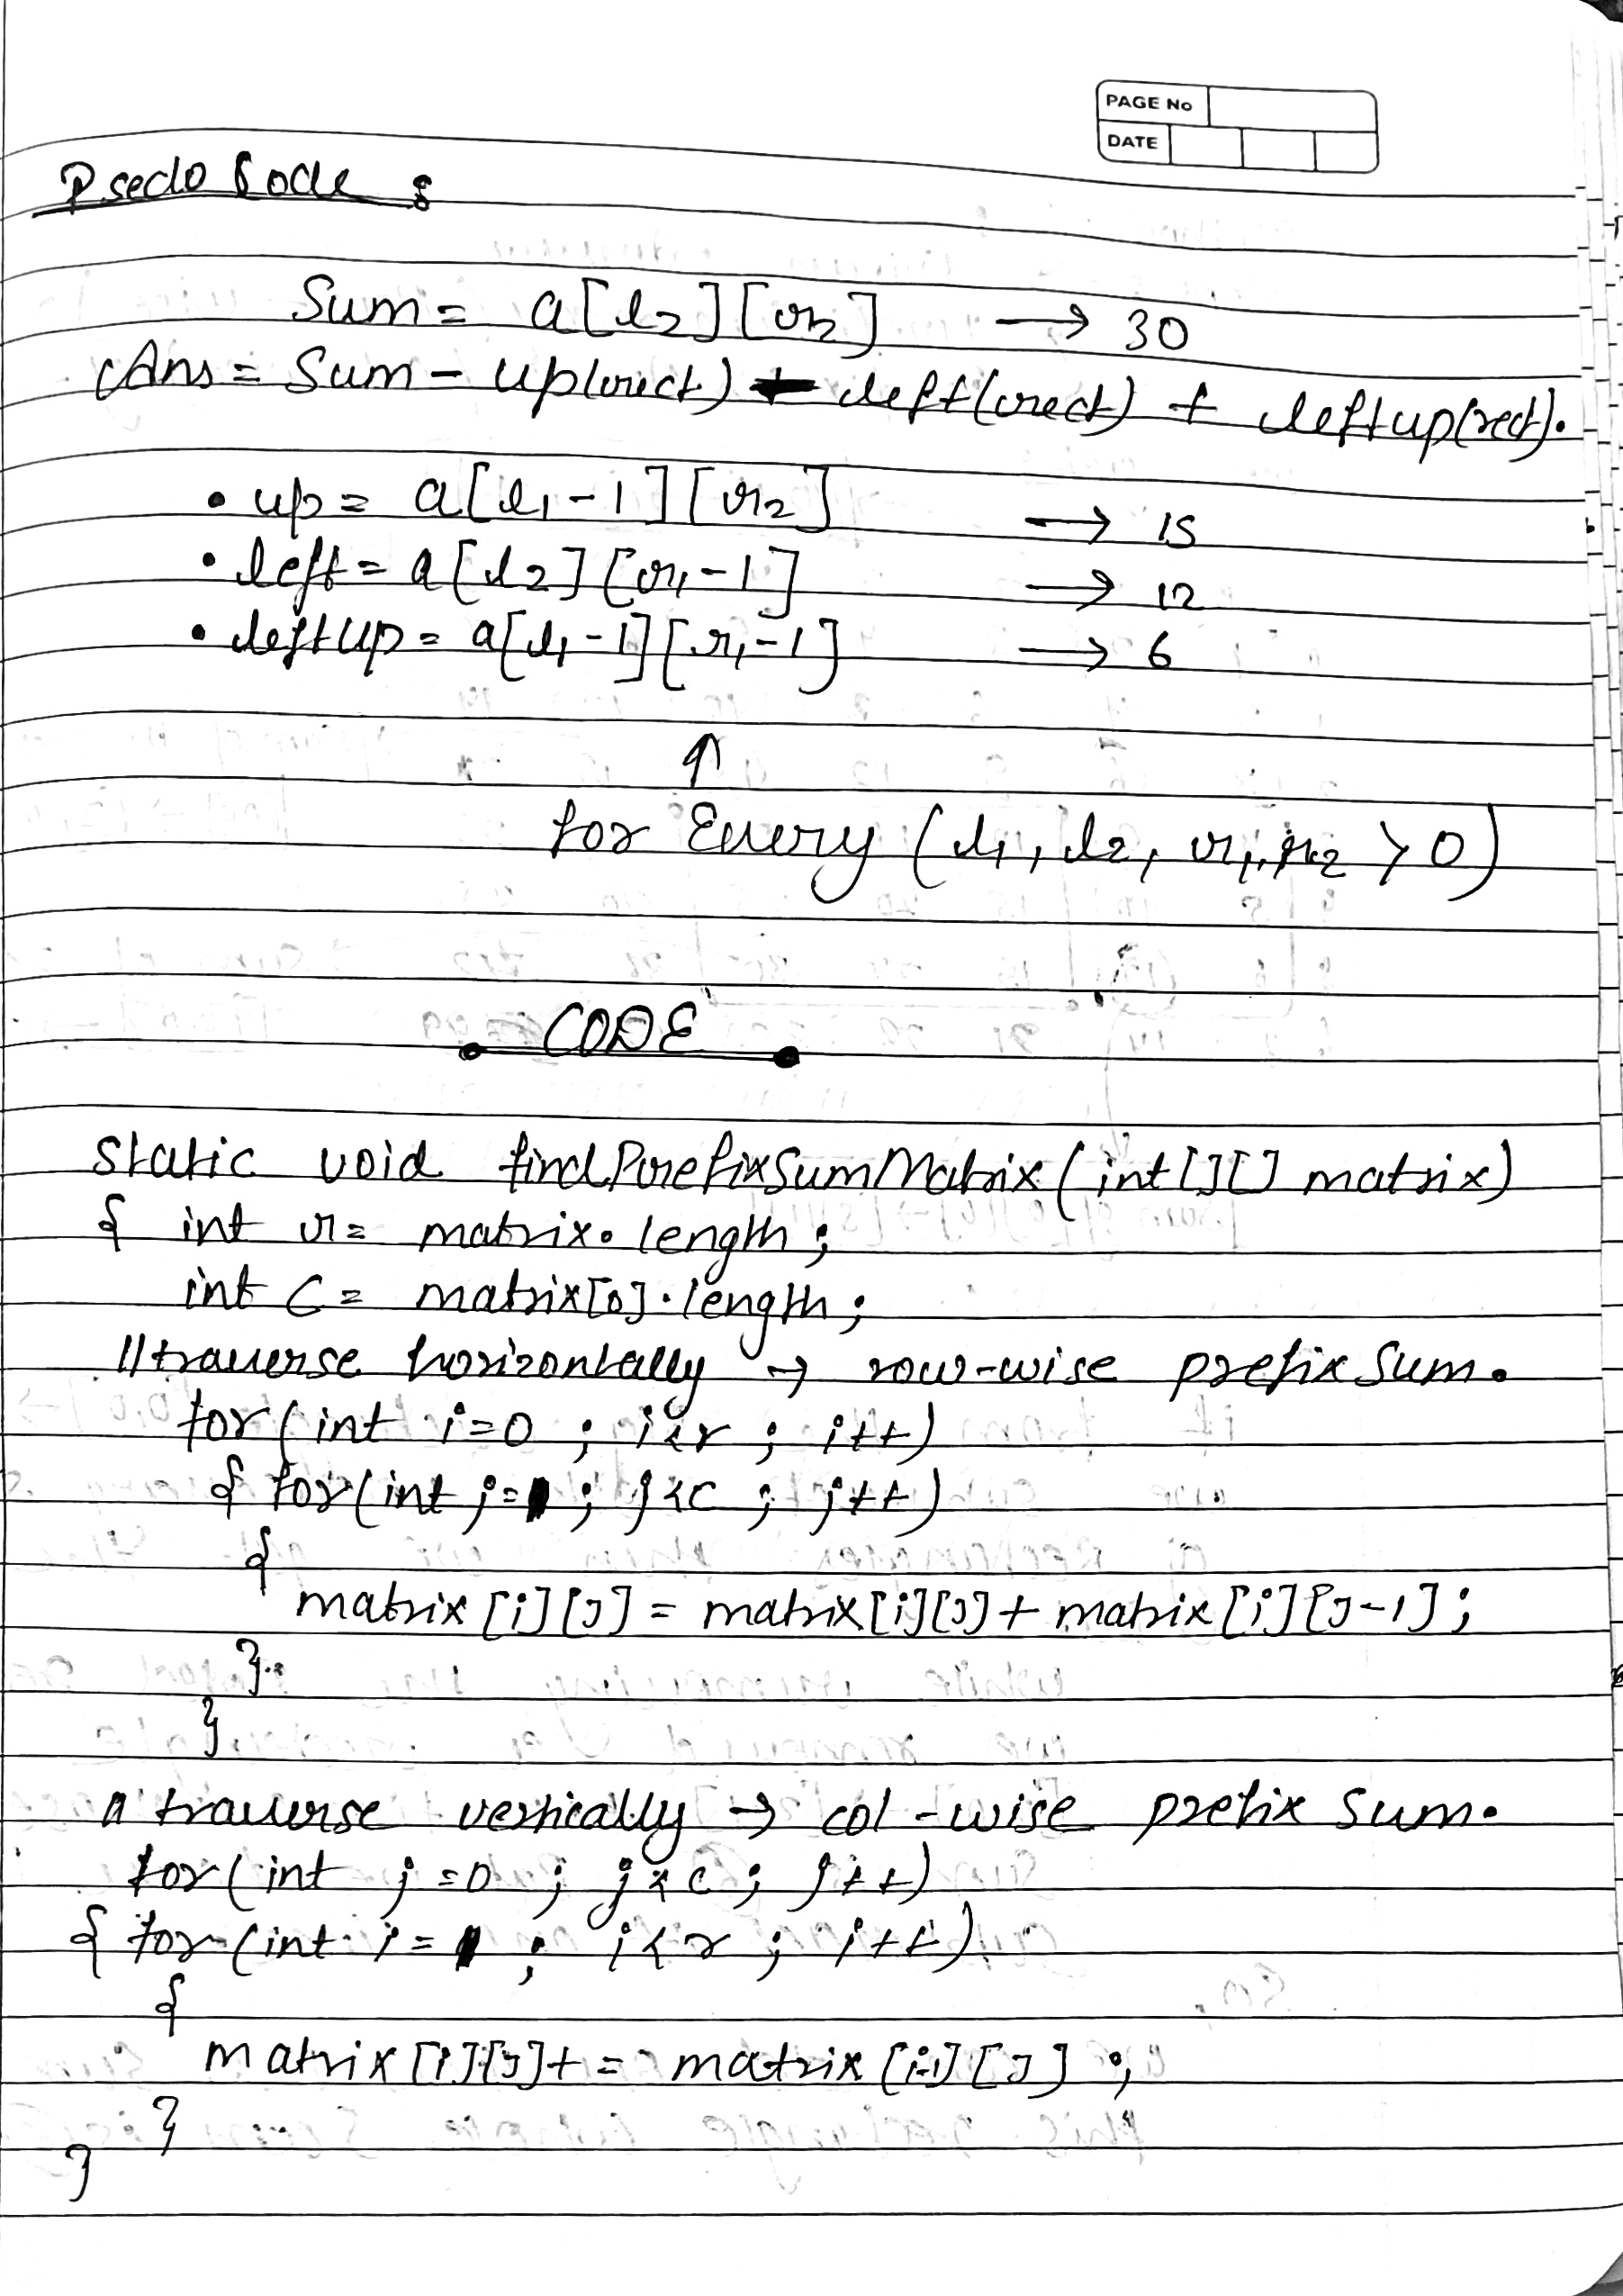 PAGE No
DATE
Psedo Code :
Sum = a[l2][r2] → 30
Ans = Sum - up(rect) - left(rect) + leftup(rect).
• up = a[l1-1][r2] → 15
• left = a[l2][r1-1] → 12
• leftup = a[l1-1][r1-1] → 6
↑
for Every (l1, l2, r1, r2 > 0)
CODE
static void findPrefixSumMatrix(int[][] matrix)
{ int r = matrix.length;
int c = matrix[0].length;
//traverse horizontally → row-wise prefix sum.
for(int i=0 ; i<r ; i++)
{ for(int j=1 ; j<c ; j++)
{
matrix[i][j] = matrix[i][j] + matrix[i][j-1];
}
}
// traverse vertically → col-wise prefix sum.
for(int j=0 ; j<c ; j++)
{ for(int i=1 ; i<r ; i++)
{
matrix[i][j] += matrix[i-1][j] ;
}
}